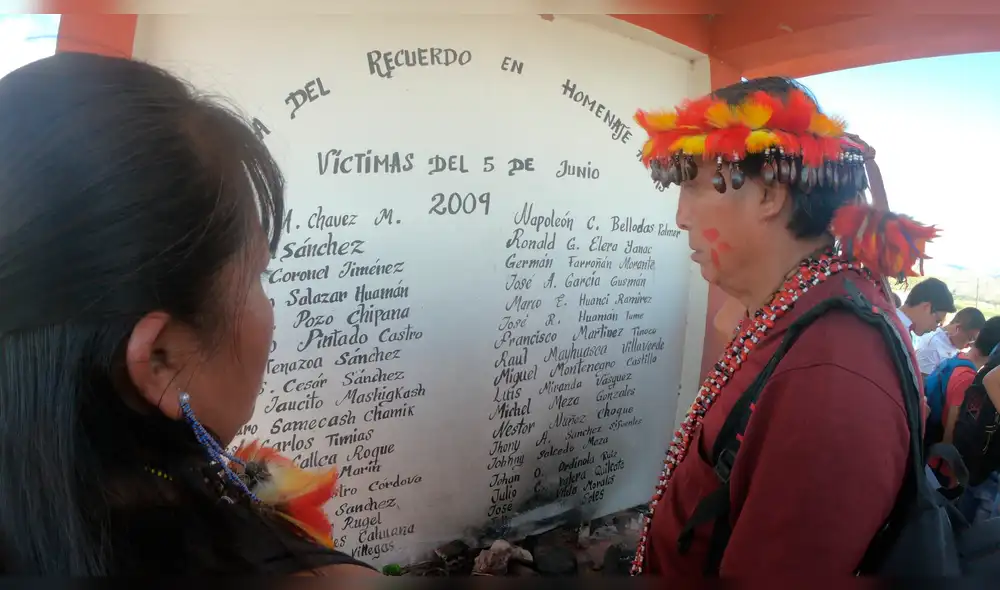 DEL RECUERDO EN HOMENAJE
VÍCTIMAS DEL 5 DE JUNIO
2009
A. Chavez M.
Sánchez
Coronel Jiménez
Salazar Huamán
Pozo Chipana
Pintado Castro
Tenazoa Sánchez
César Sánchez
Jaucito Mashigkash
Samecash Chamik
Carlos Timias
Callca Roque
Marín
Córdova
Sanchez
Rugel
Villegas
Napoleón C. Bellodas Palmer
Ronald G. Elera Yanac
Germán Farroñán Morante
José A. García Guzmán
Marco E. Huanci Ramírez
José R. Huamán Tume
Francisco Martínez Tinoco
Raul Mayhuasca Villaverde
Miguel Montenegro Castillo
Luis Miranda Vásquez
Michel Meza Gonzales
Nestor Nuñez Choque
Jhony A. Sánchez Sifuentes
Johnny Salcedo Meza
Johan O. Ordinola Ruiz
Julio
José